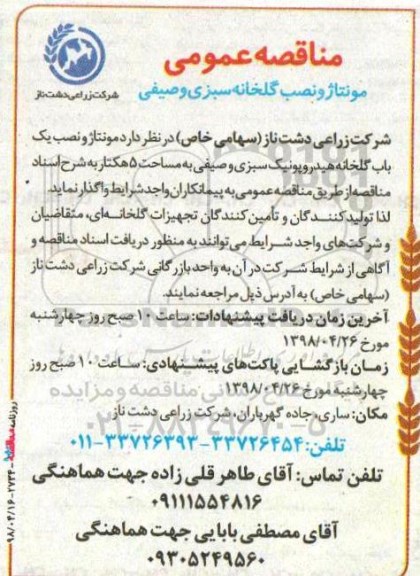 شرکت زراعی دشت ناز
مناقصه عمومی
مونتاژ و نصب گلخانه سبزی و صیفی
شرکت زراعی دشت ناز (سهامی خاص) در نظر دارد مونتاژ و نصب یک
باب گلخانه هیدروپونیک سبزی و صیفی به مساحت ۵ هکتار به شرح اسناد
مناقصه از طریق مناقصه عمومی به پیمانکاران واجد شرایط واگذار نماید.
لذا تولیدکنندگان و تأمین کنندگان تجهیزات گلخانه‌ای، متقاضیان
و شرکت‌های واجد شرایط می‌توانند به منظور دریافت اسناد مناقصه و
آگاهی از شرایط شرکت در آن به واحد بازرگانی شرکت زراعی دشت ناز
(سهامی خاص) به آدرس ذیل مراجعه نمایند.
آخرین زمان دریافت پیشنهادات: ساعت ۱۰ صبح روز چهارشنبه
مورخ ۱۳۹۸/۰۴/۲۶
زمان بازگشایی پاکت‌های پیشنهادی: ساعت ۱۰ صبح روز
چهارشنبه مورخ ۱۳۹۸/۰۴/۲۶
مکان: ساری، جاده گهرباران، شرکت زراعی دشت ناز
تلفن: ۳۳۷۲۶۴۵۴-۳۳۷۲۶۳۹۳-۰۱۱
تلفن تماس: آقای طاهر قلی زاده جهت هماهنگی
۰۹۱۱۱۵۵۴۸۱۶
آقای مصطفی بابایی جهت هماهنگی
۰۹۳۰۵۲۴۹۵۶۰
۰۲۱-۸۸۳۴۹۶۷۰-۵